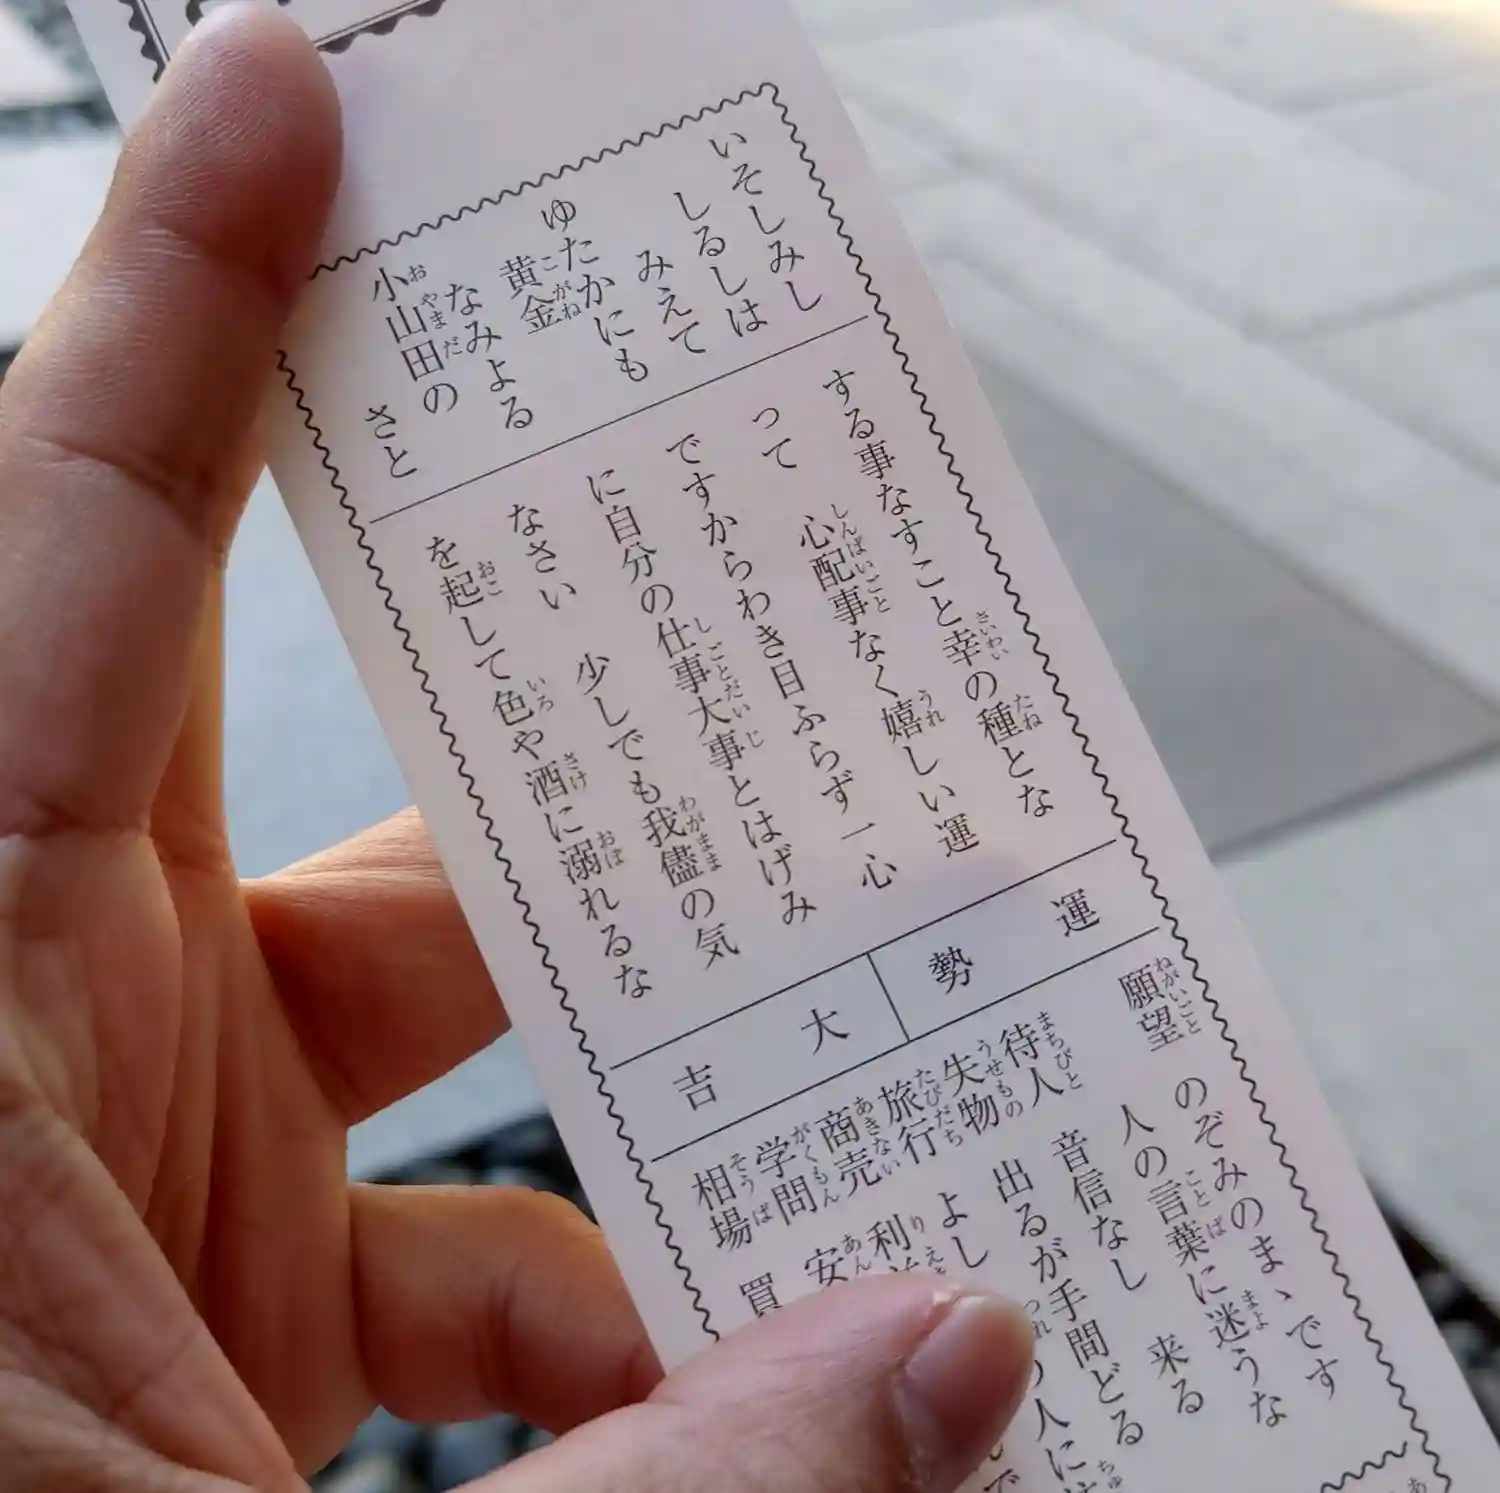 いそしみし
しるしは
みえて
ゆたかにも
黄金
なみよる
小山田の
さと
する事なすこと幸の種とな
って 心配事なく嬉しい運
ですからわき目ふらず一心
に自分の仕事大事とはげみ
なさい 少しでも我儘の気
を起して色や酒に溺れるな
運勢 大吉
願望 のぞみのまゝです
人の言葉に迷うな
待人 音信なし 来る
失物 出るが手間どる
旅行 よし
商売 利
学問 安
相場 買